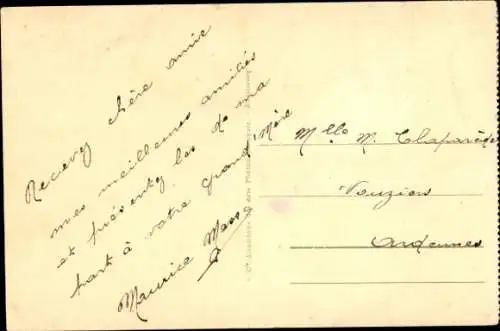 Recevez chère amie
mes meilleures amitiés
et présentez les de ma
part à votre grand Mère
Maurice Mass
Mlle M. Chaparède
Vouziers
Ardennes